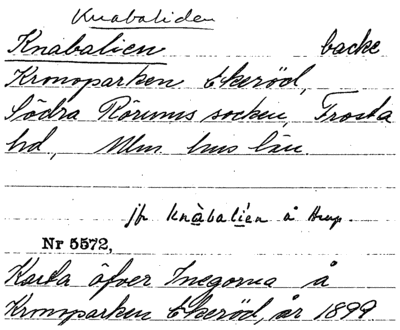 Knabaliden
Knabalien backe
Kronoparken Ekeröd,
Södra Rörums socken, Frosta
hd, Mlm. hus län.
jfr knàbalíen å
Nr 5572,
Karta öfver Inegorna å
Kronoparken Ekeröd, år 1899.